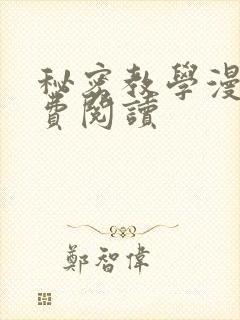 秘密教學漫
費閱讀
鄭智偉